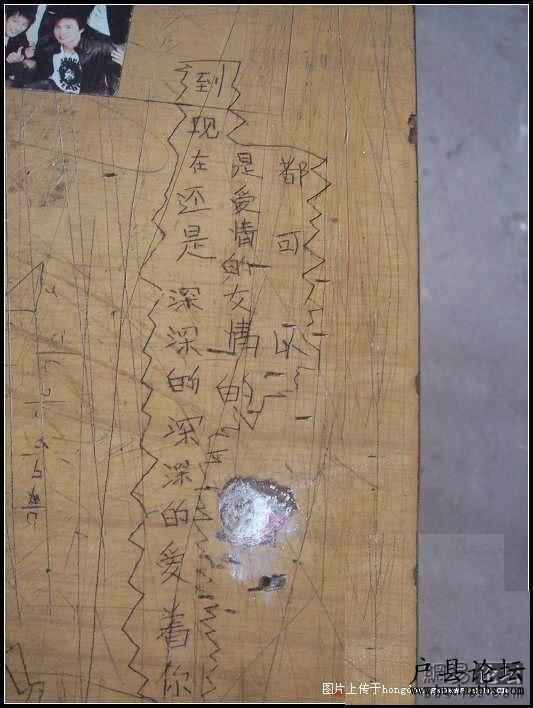 到现在还是深深的深深的爱着你
是爱情的女情的
都可
户县论坛
图片上传于